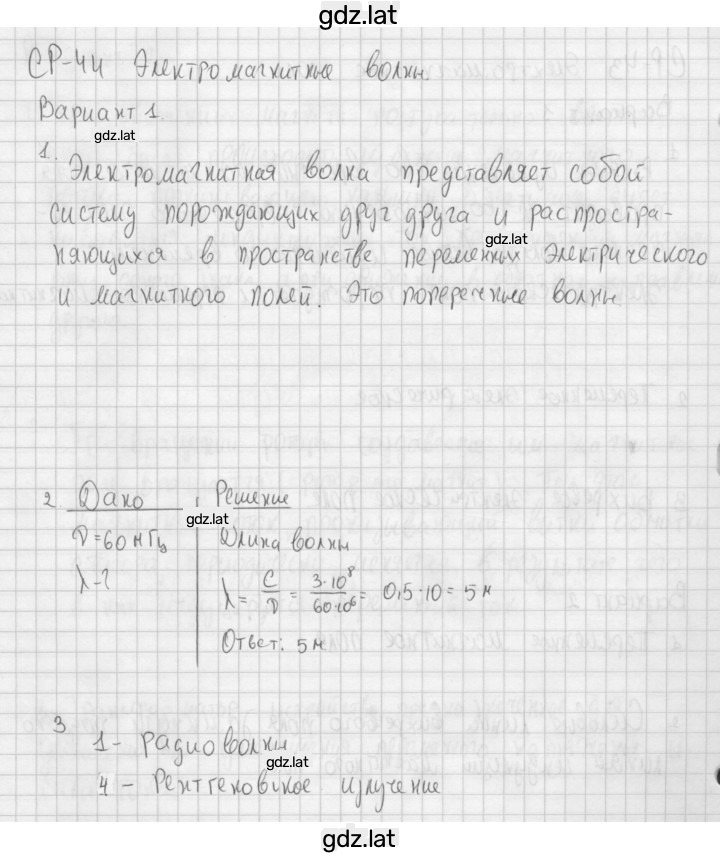 gdz.lat
СР-44 Электромагнитные волны.
Вариант 1.
gdz.lat
1. Электромагнитная волна представляет собой
систему порождающих друг друга и распростра-
gdz.lat
няющихся в пространстве переменных электрического
и магнитного полей. Это поперечные волны
2. Дано Решение
gdz.lat
ν=60 мГц Длина волны
λ-? λ = C/ν = 3·10⁸/60·10⁶ = 0,5·10 = 5 м
Ответ: 5 м
3.
1 - радиоволны
gdz.lat
4 - Рентгеновское излучение
gdz.lat